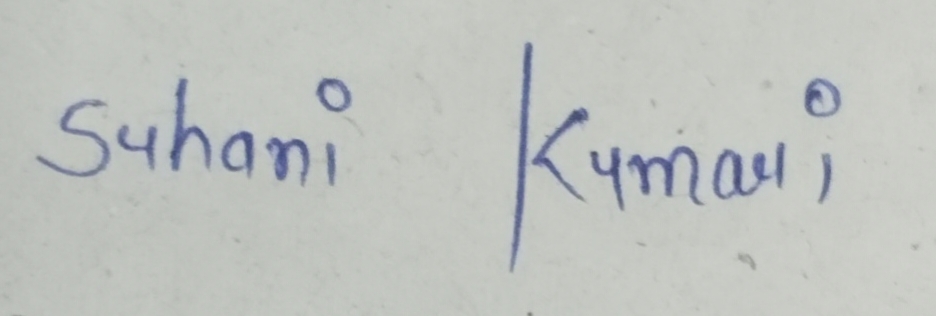 Suhani Kumari